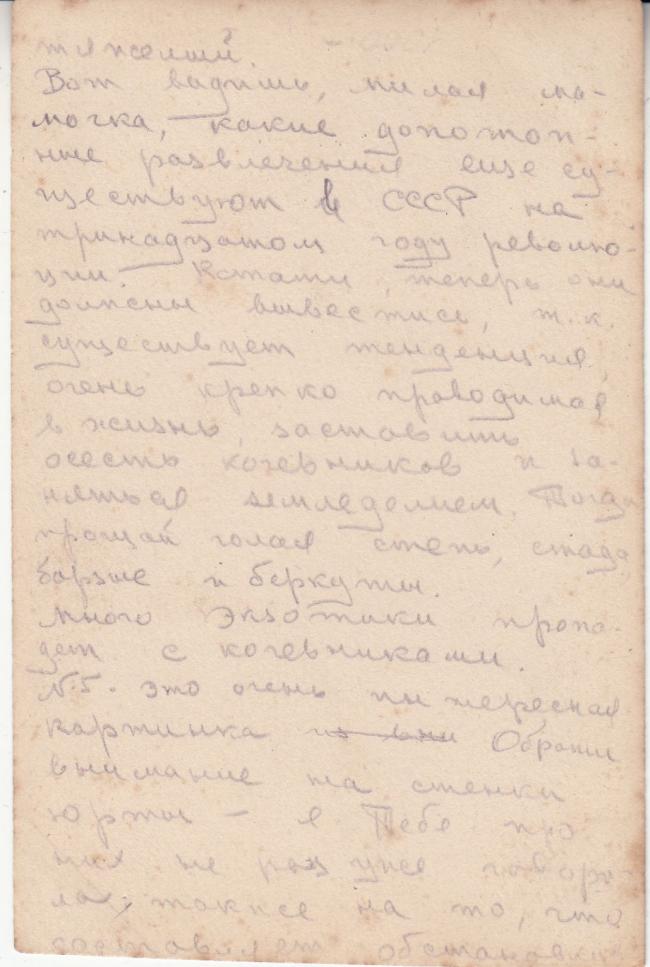 тяжелый.
Вот видишь, милая ма-
мочка, какие допотоп-
ные развлечения еще су-
ществуют в СССР на
тринадцатом году револю-
ции. Кстати, теперь они
должны вывестись, т.к.
существует тенденция,
очень крепко проводимая
в жизнь, заставить
осесть кочевников и за-
няться земледелием. Тогда
прощай голая степь, стада,
борзые и беркуты.
Много экзотики пропа-
дет с кочевниками.
N.5. это очень интересная
картинка Обрати
внимание на стенки
юрты – я Тебе про
них не раз уже говори-
ла, также на то, что
составляет обстановку